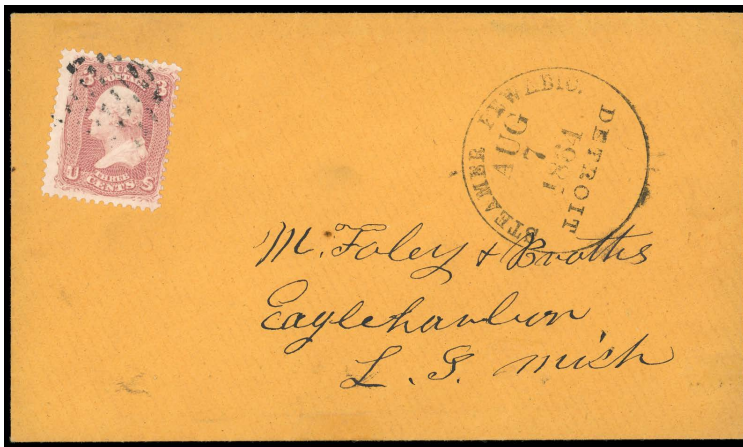 3 U.S. 3
POSTAGE
THREE
U CENTS S
STEAMER PEWABIC.
AUG
7
1864
DETROIT
M. Foley & Broths
Eagleharbor
L. S. Mich